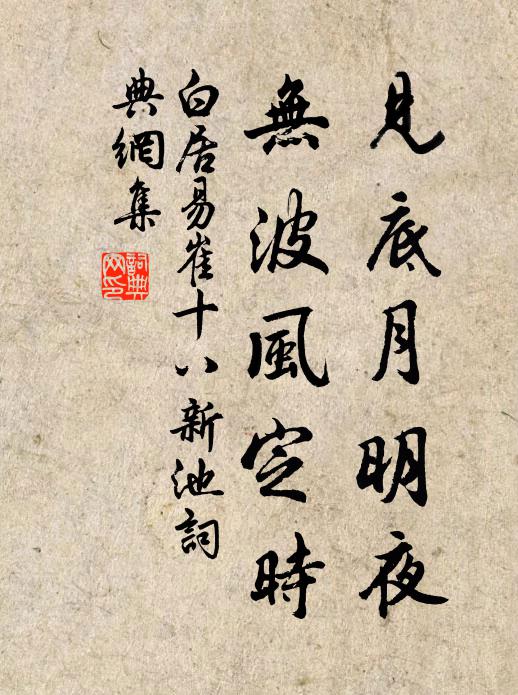 見底月明夜
無波風定時
白居易崔十八新池詞
典網集
詞典網印